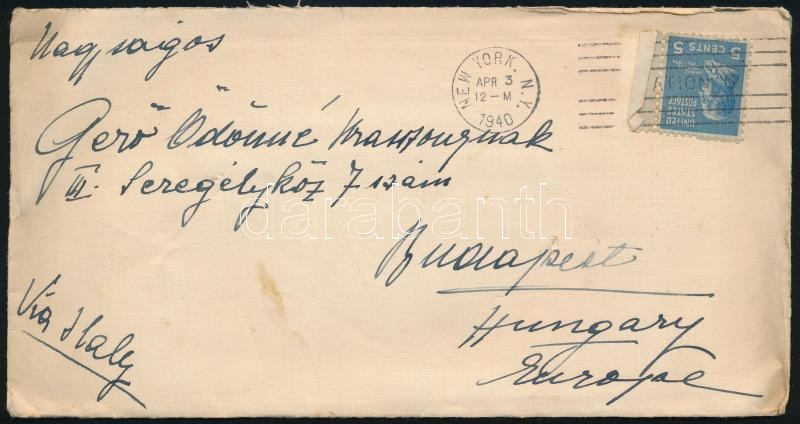 Nagyságos
NEW YORK, N.Y.
APR 3
12-M
1940
5 CENTS 5
UNITED
STATES
POSTAGE
Gerő Ödönné Asszonynak
III. Seregélyköz 7 szám
darabanth
Budapest
Hungary
Europe
Via Italy